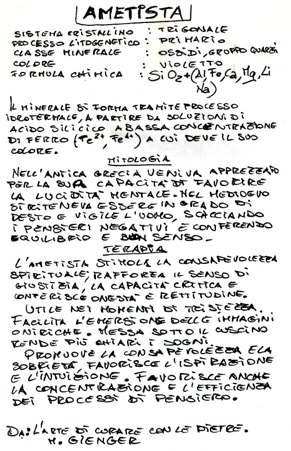 AMETISTA
SISTEMA CRISTALLINO : TRIGONALE
PROCESSO LITOGENETICO : PRIMARIO
CLASSE MINERALE : OSSIDI, GRUPPO QUARZI
COLORE : VIOLETTO
FORMULA CHIMICA : SiO2+(Al,Fe,Ca,Mg,Li
Na)
IL MINERALE SI FORMA TRAMITE PROCESSO
IDROTERMALE, A PARTIRE DA SOLUZIONI DI
ACIDO SILICICO A BASSA CONCENTRAZIONE
DI FERRO (Fe2+, Fe3+) A CUI DEVE IL SUO
COLORE.
MITOLOGIA
NELL'ANTICA GRECIA VENIVA APPREZZATO
PER LA SUA CAPACITA' DI FAVORIRE
LA LUCIDITA' MENTALE. NEL MEDIOEVO
SI RITENEVA ESSERE IN GRADO DI
DESTO E VIGILE L'UOMO, SCACCIANDO
I PENSIERI NEGATIVI E CONFERENDO
EQUILIBRIO E BUON SENSO.
TERAPIA
L'AMETISTA STIMOLA LA CONSAPEVOLEZZA
SPIRITUALE, RAFFORZA IL SENSO DI
GIUSTIZIA, LA CAPACITA' CRITICA E
CONFERISCE ONESTA' E RETTITUDINE.
UTILE NEI MOMENTI DI TRISTEZZA.
FACILITA L'EMERSIONE DELLE IMMAGINI
ONIRICHE. MESSA SOTTO IL CUSCINO
RENDE PIÙ CHIARI I SOGNI.
PROMUOVE LA CONSAPEVOLEZZA E LA
SOBRIETA', FAVORISCE L'ISPIRAZIONE
E L'INTUIZIONE. FAVORISCE ANCHE
LA CONCENTRAZIONE E L'EFFICIENZA
DEI PROCESSI DI PENSIERO.
DA: L'ARTE DI CURARE CON LE PIETRE.
M. GIENGER